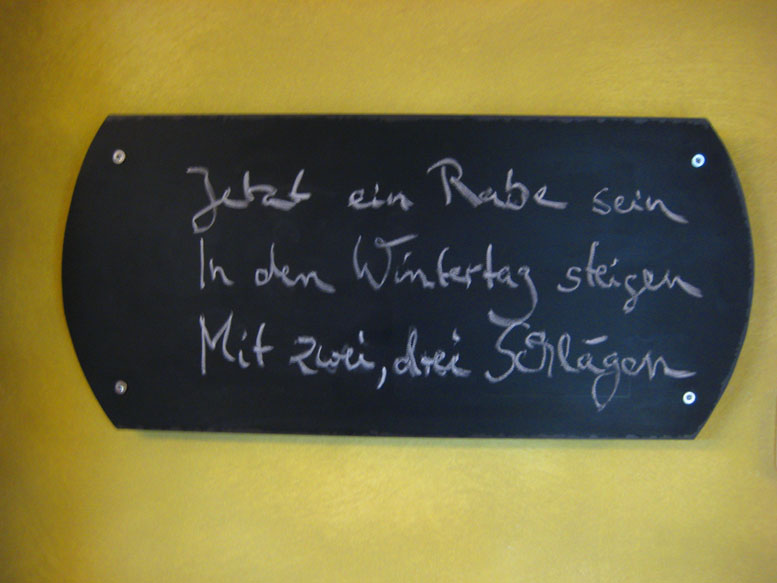 Jetzt ein Rabe sein
In den Wintertag steigen
Mit zwei, drei Schlägen